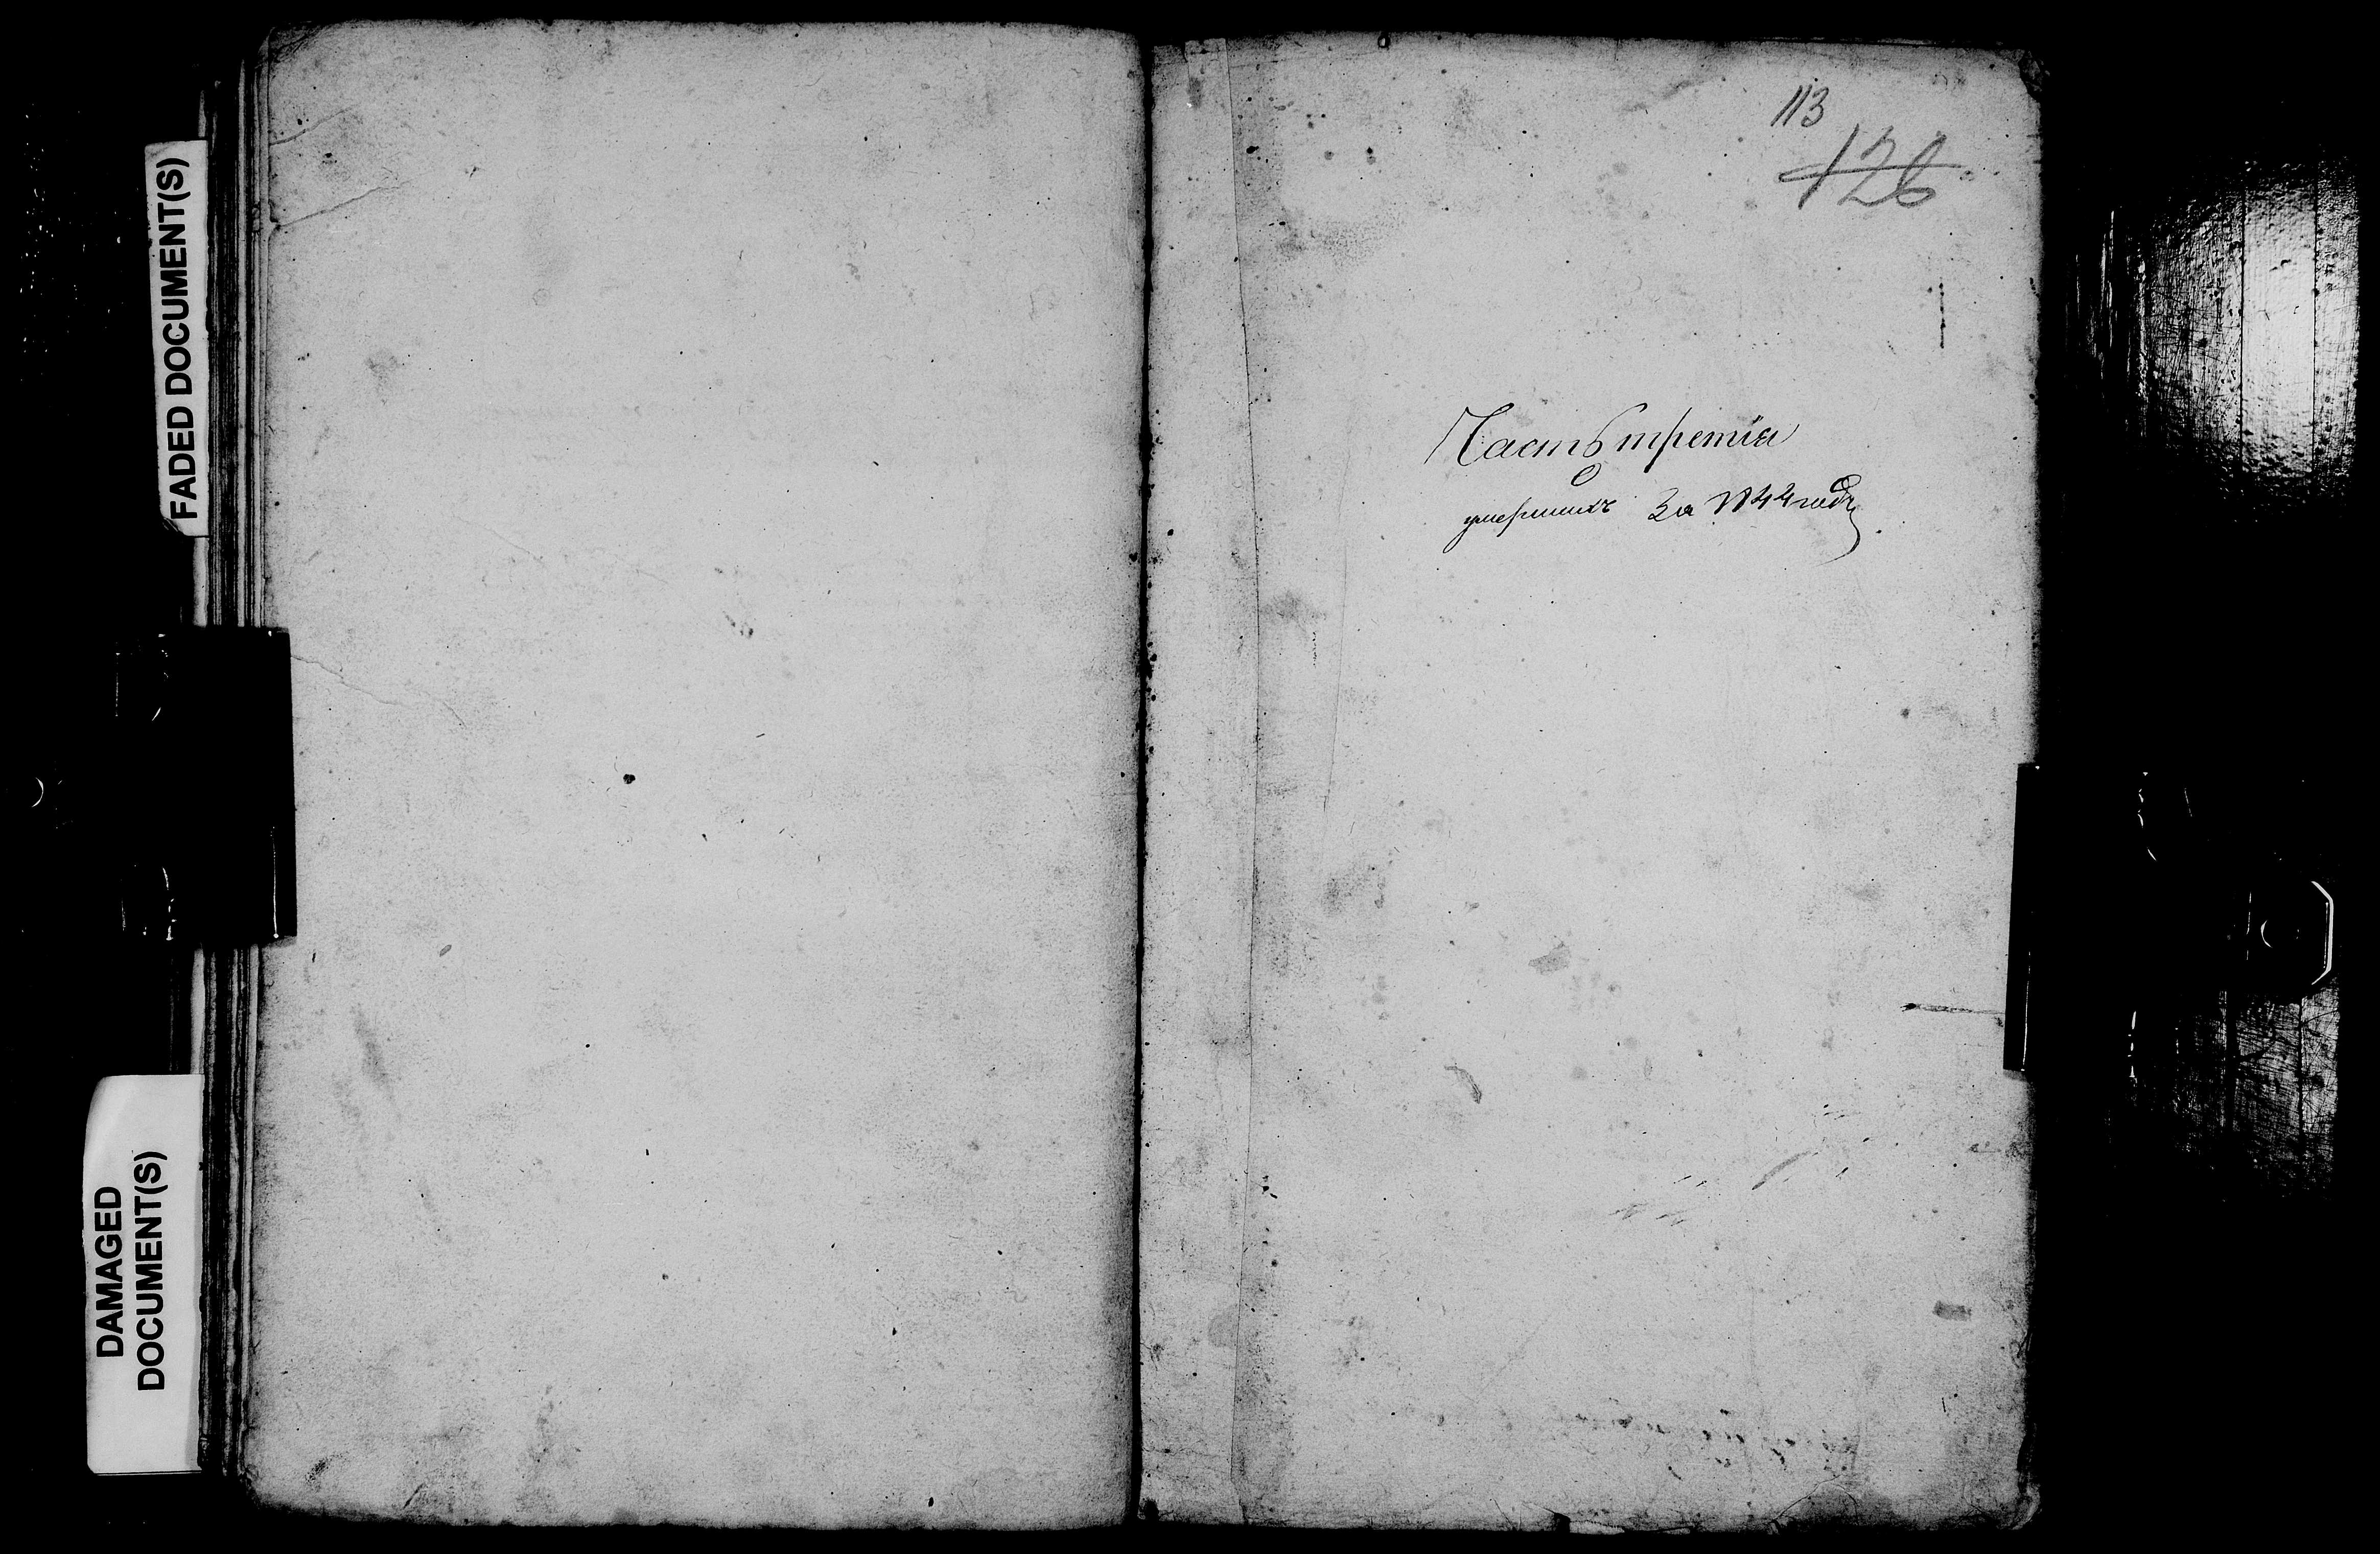 FADED DOCUMENT(S)
DAMAGED
DOCUMENT(S)
113
126
Часть третія
О
умершихъ За 1844 годъ